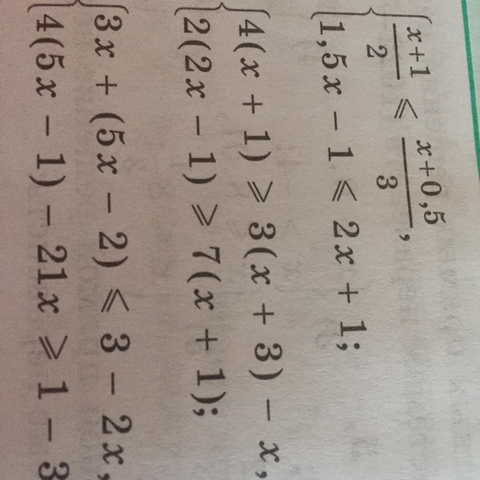 { x+1/2 ⩽ x+0,5/3,
1,5x − 1 ⩽ 2x + 1;
{ 4(x + 1) ⩾ 3(x + 3) − x,
2(2x − 1) ⩾ 7(x + 1);
{ 3x + (5x − 2) ⩽ 3 − 2x,
4(5x − 1) − 21x ⩾ 1 − 3